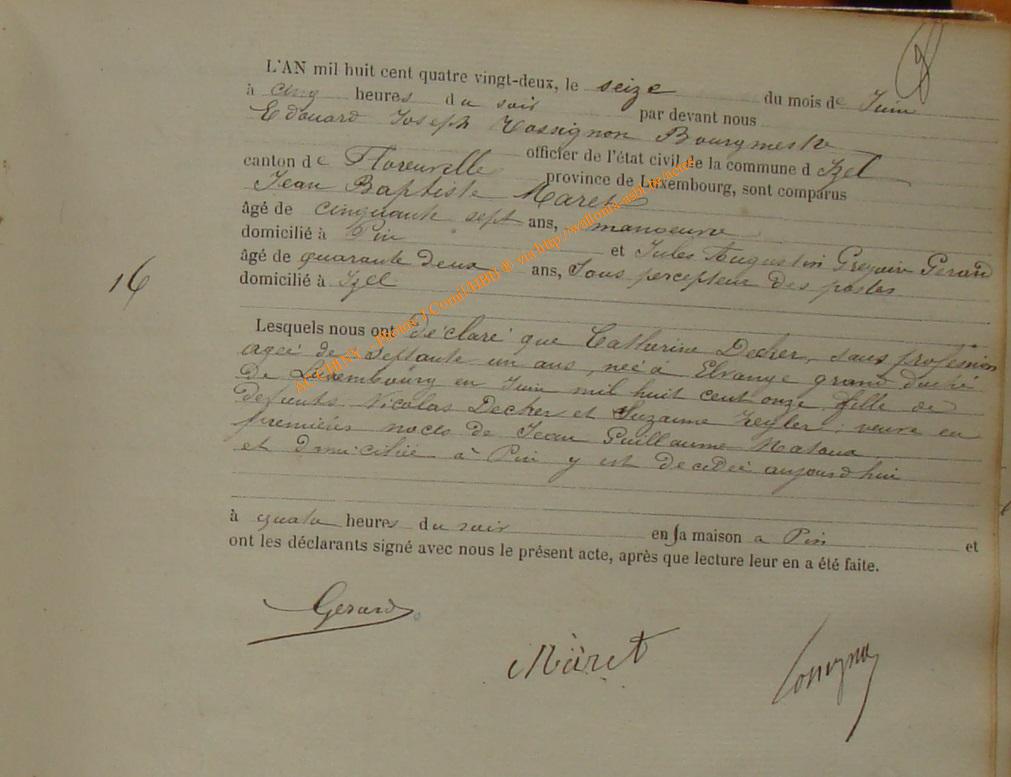 L'AN mil huit cent quatre vingt-deux, le seize du mois de Juin
à cinq heures du soir par devant nous
Edouard Joseph Rossignon Bourgmestre
officier de l'état civil de la commune d Izel
canton de Florenville province de Luxembourg, sont comparus
Jean Baptiste Maret
âgé de cinquante sept ans, manoeuvre
domicilié à Pin et Jules Augustin Grégoire Gérard
âgé de quarante deux ans, Sous percepteur des postes
domicilié à Izel
16
Lesquels nous ont déclaré que Catherine Decker, sans profession
agée de septante un ans, née à Elvange grand duché
de Luxembourg en Juin mil huit cent onze fille de
défunts Nicolas Decker et Suzanne Zeyler; veuve en
premières noces de Jean Guillaume
et domiciliée à Pin y est decedée aujourd'hui
à quatre heures du soir en sa maison a Pin et
ont les déclarants signé avec nous le présent acte, après que lecture leur en a été faite.
Gerard
Maret
ACCHINY - via http://wallonia-asbl.be/actes